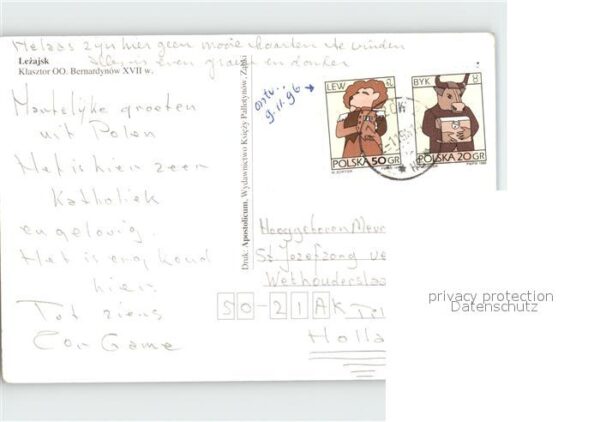 Helaas zijn hier geen mooie kaarten te vinden
alles is even grauw en donker
Leżajsk
Klasztor OO. Bernardynów XVII w.
Hartelijke groeten
uit Polen
Het is hier zeer
Katholiek
en gelovig.
Het is erg koud
hier.
Tot ziens
Cor Game
Druk: Apostolicum, Wydawnictwo Księży Pallotynów, Ząbki
ontv.:
9.11.96
LEW
POLSKA 50 GR
BYK
POLSKA 20 GR
Hooggeboren
St Jozefzorg
Wethouderslaa
50-21AK
Holla
privacy protection
Datenschutz